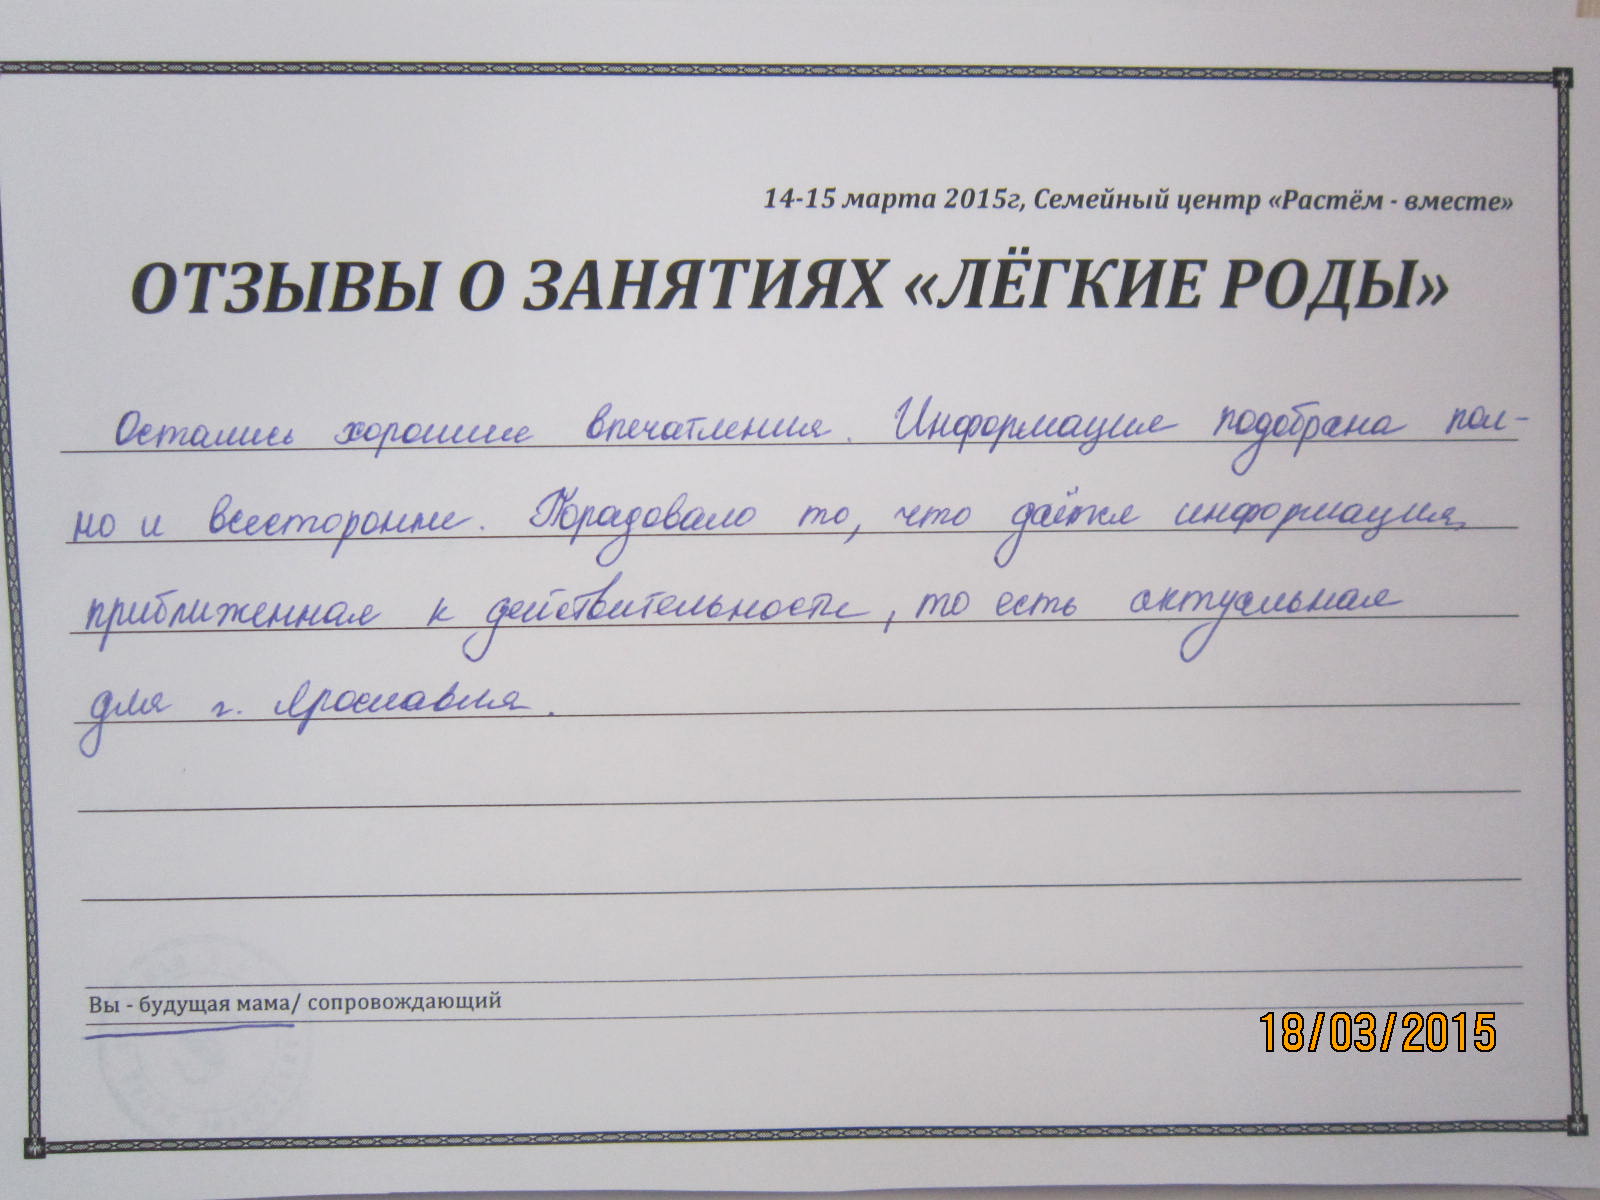 14-15 марта 2015г, Семейный центр «Растём - вместе»
ОТЗЫВЫ О ЗАНЯТИЯХ «ЛЁГКИЕ РОДЫ»
Остались хорошие впечатления. Информация подобрана пол-
но и всесторонне. Порадовало то, что даётся информация,
приближенная к действительности, то есть актуальная
для г. Ярославля.
Вы - будущая мама/ сопровождающий
18/03/2015